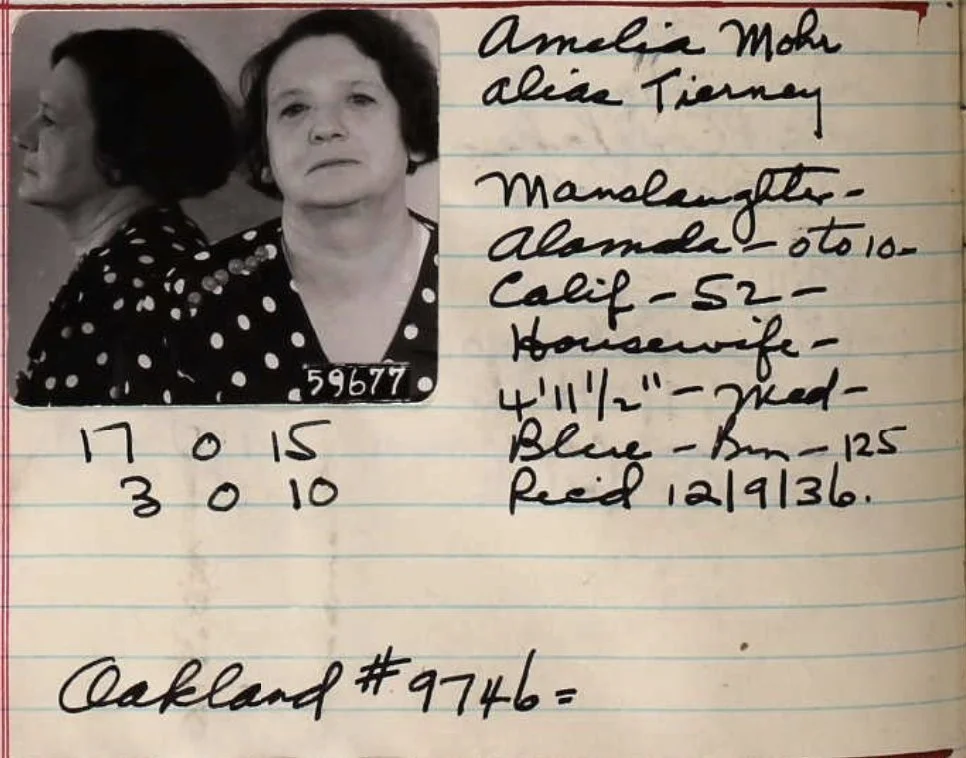 Amelia Mohr
alias Tierney
Manslaughter -
Alameda - 0 to 10 -
Calif - 52 -
Housewife -
4'11 1/2" - Med -
Blue - Brn - 125
Rec'd 12/9/36.
59677
17 0 15
3 0 10
Oakland # 9746 =